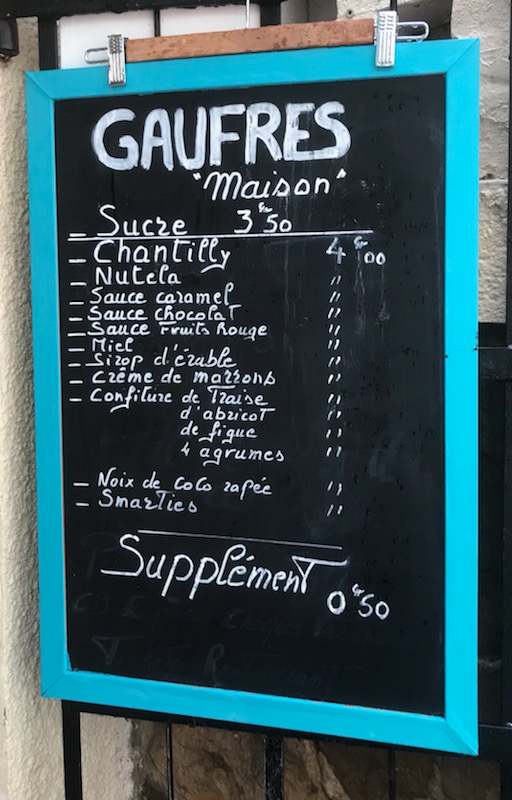 GAUFRES
"Maison"
- Sucre 3€50
- Chantilly 4€00
- Nutela "
- Sauce caramel "
- Sauce chocolat "
- Sauce Fruits Rouge "
- Miel "
- Sirop d'érable "
- Crème de marrons "
- Confiture de Fraise "
d'abricot "
de figue "
4 agrumes "
- Noix de Coco rapée "
- Smarties "
Supplément 0€50